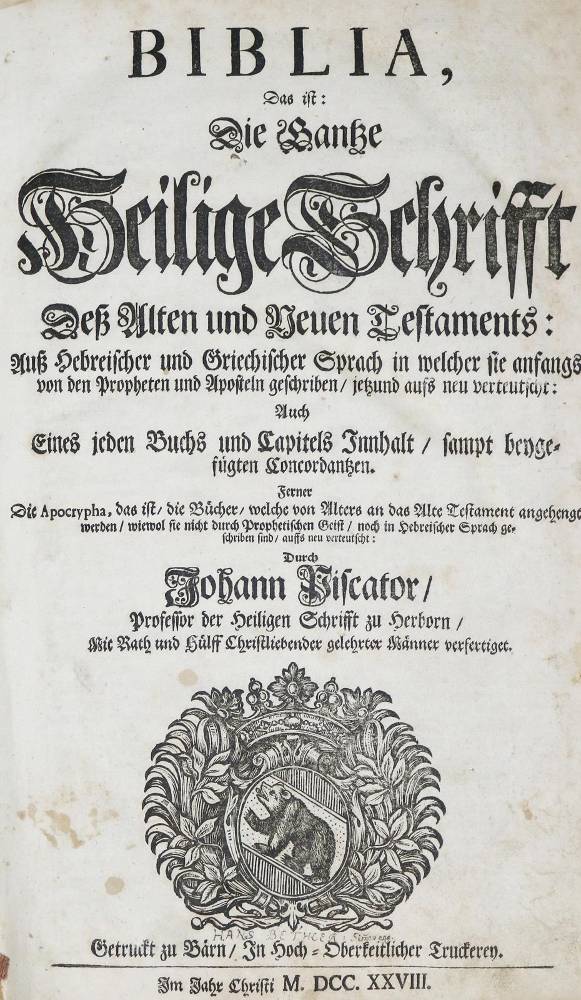 BIBLIA,
Das ist:
Die Gantze
Heilige Schrifft
Deß Alten und Neuen Testaments:
Auß Hebreischer und Griechischer Sprach in welcher sie anfangs
von den Propheten und Aposteln geschriben / jetzund aufs neu verteutscht:
Auch
Eines jeden Buchs und Capitels Innhalt / sampt beyge-
fügten Concordantzen.
Ferner
Die Apocrypha, das ist / die Bücher / welche von Alters an das Alte Testament angehengt
werden / wiewol sie nicht durch Prophetischen Geist / noch in Hebreischer Sprach ge-
schriben sind / auffs neu verteutscht:
Durch
Johann Piscator /
Professor der Heiligen Schrifft zu Herborn /
Mit Rath und Hülff Christliebender gelehrter Männer verfertiget.
HANS
Getruckt zu Bärn / In Hoch-Oberkeitlicher Truckerey.
Im Jahr Christi M. DCC. XXVIII.